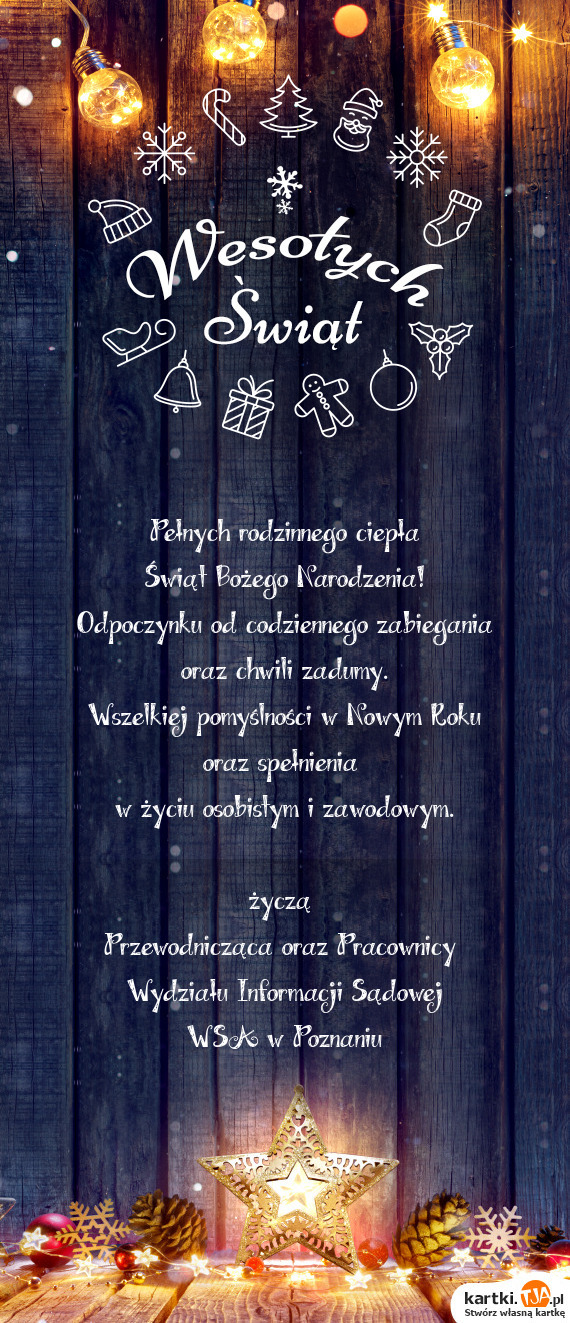 Wesołych
Świąt
Pełnych rodzinnego ciepła
Świąt Bożego Narodzenia!
Odpoczynku od codziennego zabiegania
oraz chwili zadumy.
Wszelkiej pomyślności w Nowym Roku
oraz spełnienia
w życiu osobistym i zawodowym.
życzą
Przewodnicząca oraz Pracownicy
Wydziału Informacji Sądowej
WSA w Poznaniu
kartki.TJA.pl
Stwórz własną kartkę